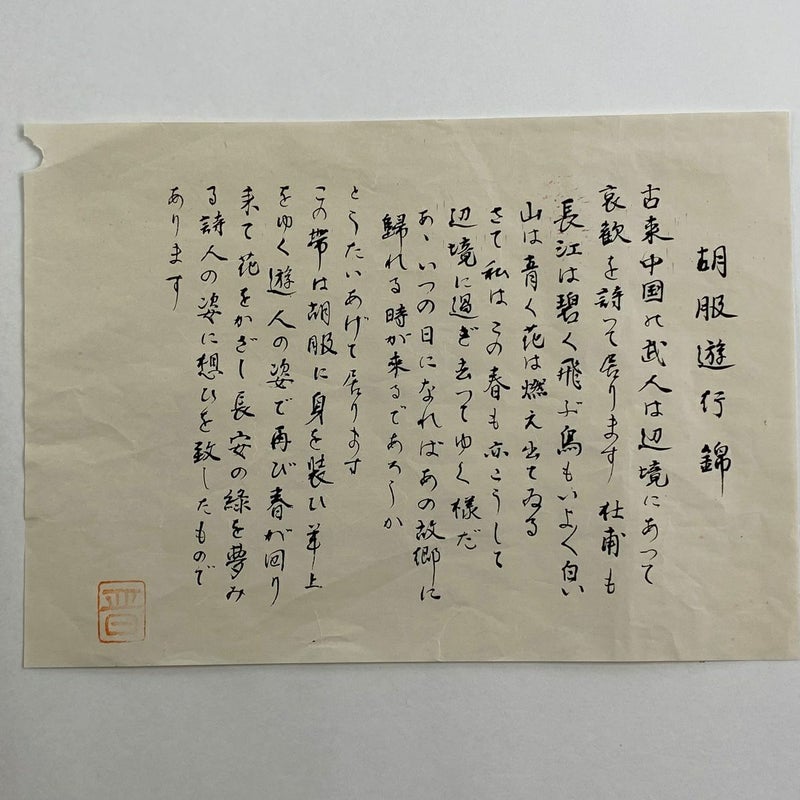 胡服遊行錦
古来中国の武人は辺境にあつて
哀歓を詩って居ります 杜甫も
長江は碧く飛ぶ鳥もいよく白い
山は青く花は燃え出てゐる
さて私はこの春も亦こうして
辺境に過ぎ去つてゆく様だ
あゝいつの日になればあの故郷に
歸れる時が来るであろうか
とうたいあげて居ります
この帯は胡服に身を装ひ羊上
をゆく遊人の姿で再び春が回り
来て花をかざし長安の緑を夢み
る詩人の姿に想ひを致したもので
あります
晋